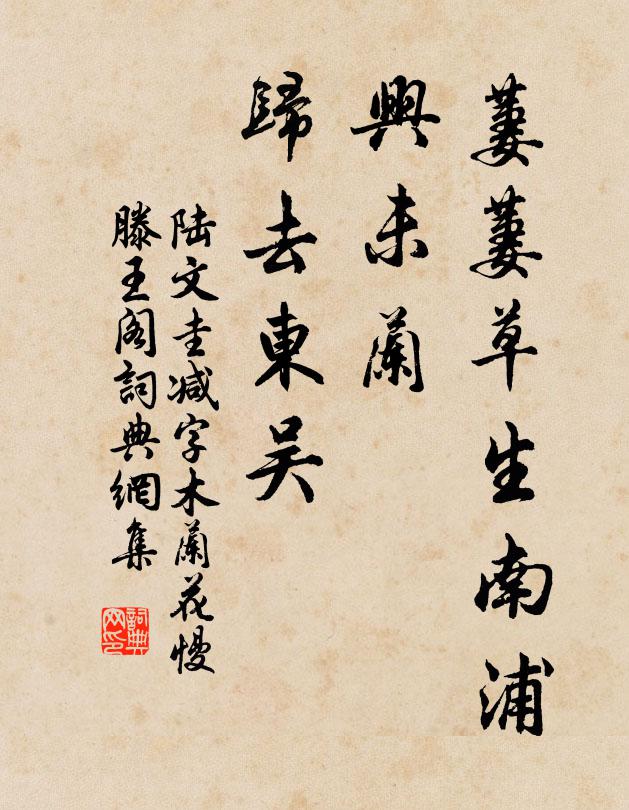 萋萋草生南浦
興未蘭
歸去東吴
陆文圭减字木蘭花慢
滕王阁詞典網集
詞典网印